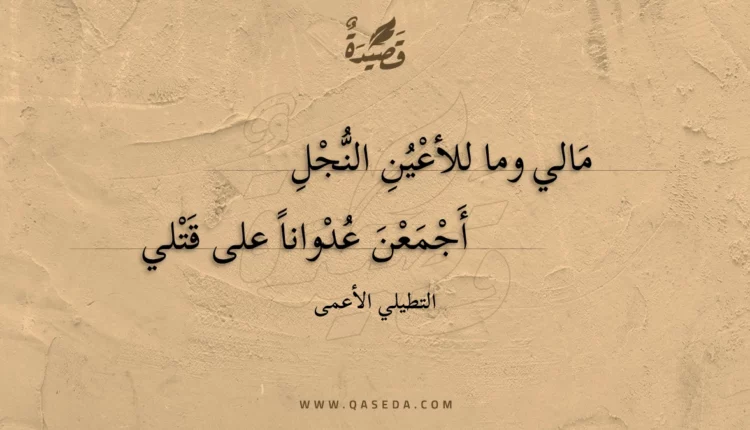 قَصِيدَةٌ
مَالي وما للأعْيُنِ النُّجْلِ
أَجْمَعْنَ عُدْواناً على قَتْلي
التطيلي الأعمى
WWW.QASEDA.COM